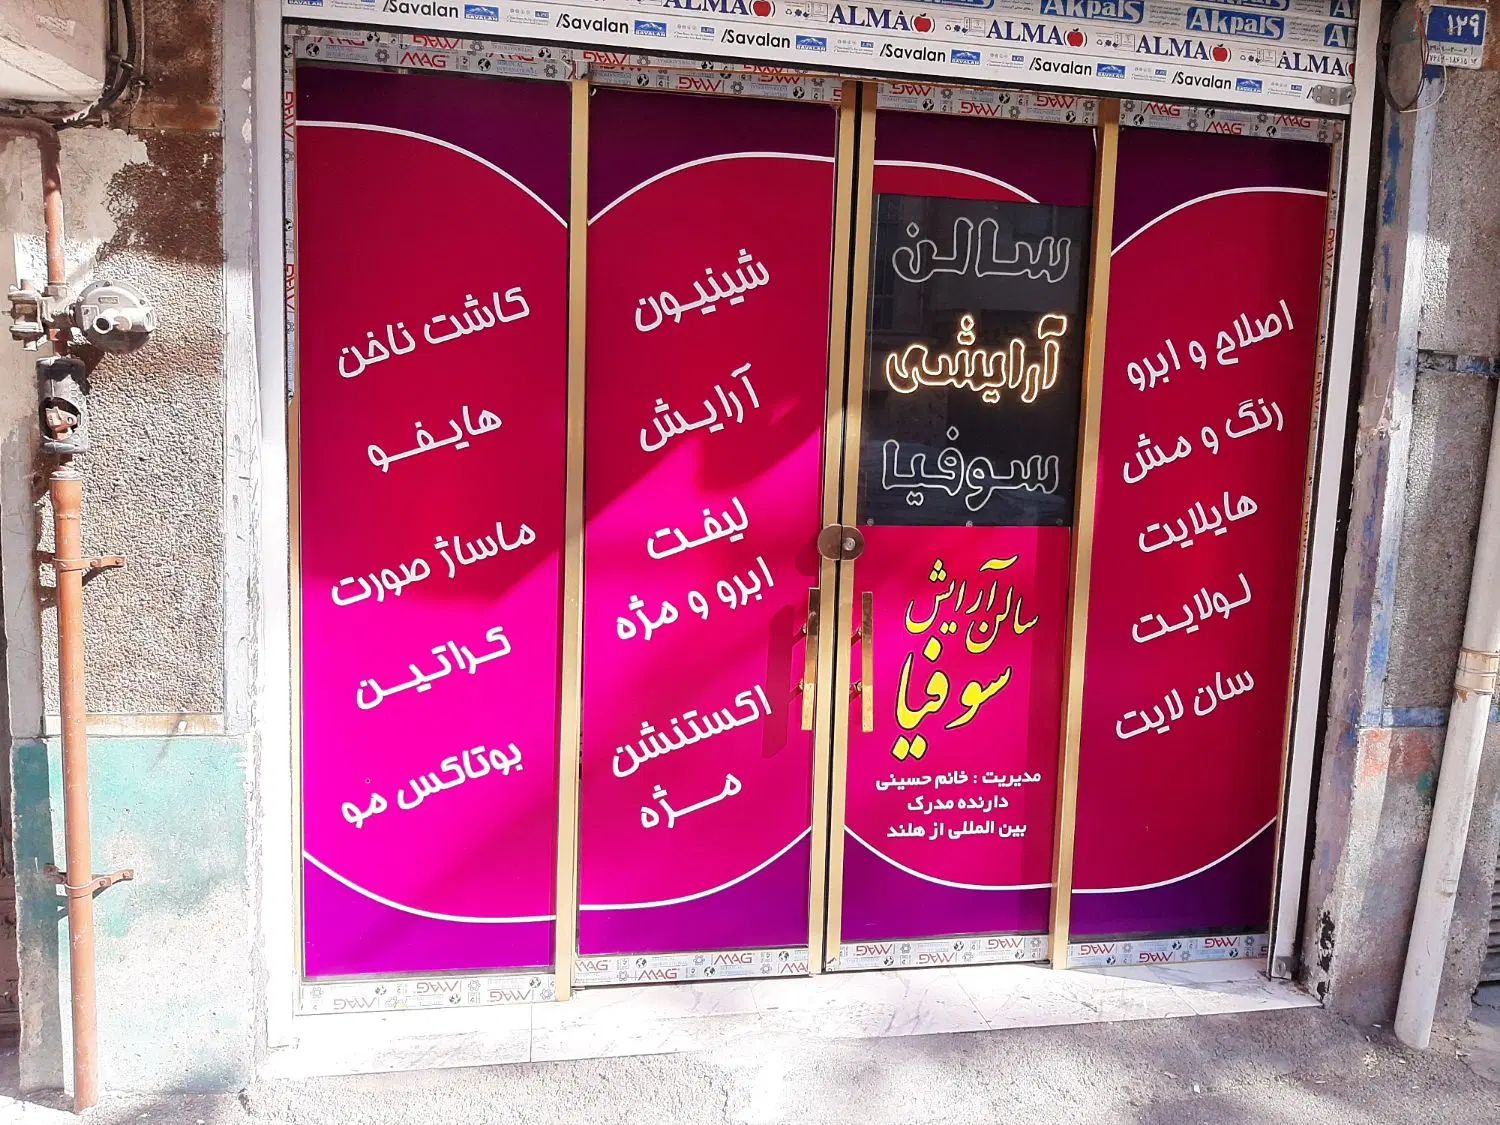 /Savalan SAVALAN /Savalan SAVALAN /Savalan SAVALAN /Savalan SAVALAN /Savalan SAVALAN /Savalan SAVALAN
ALMA ALMA ALMA ALMA ALMA
Akpals Akpals
۱۲۹
اصلاح و ابرو
رنگ و مش
هایلایت
لولایت
سان لایت
سالن
آرایشی
سوفیا
سالن آرایش
سوفیا
مدیریت : خانم حسینی
دارنده مدرک
بین المللی از هلند
شینیون
آرایش
لیفت
ابرو و مژه
اکستنشن
مژه
کاشت ناخن
هایفو
ماساژ صورت
کراتین
بوتاکس مو
MAG